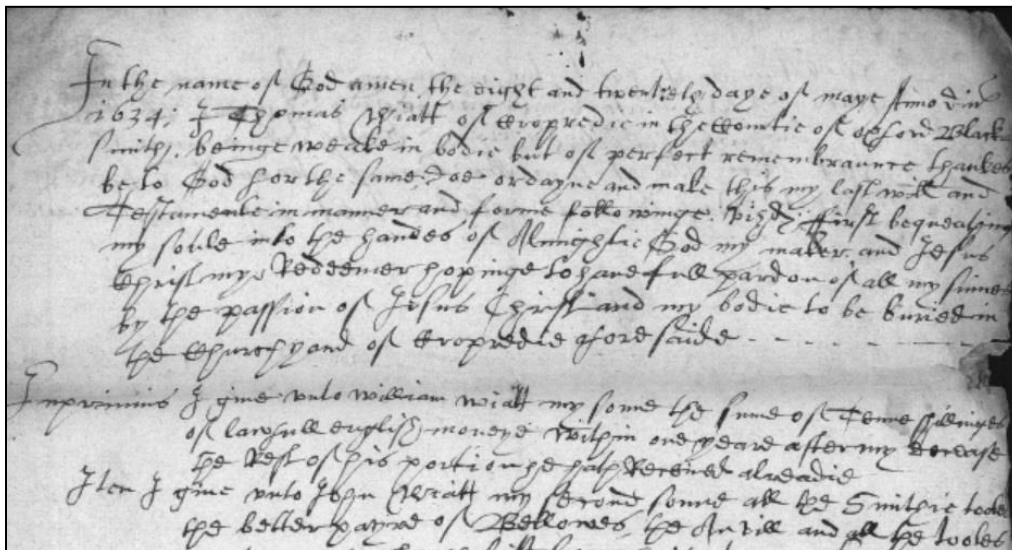 In the name of God amen, the eight and twentieth daye of maye Anno dni
1634; I Thomas Wiatt of Cropredie in the Countie of oxford Black
smith, beinge weake in bodie but of perfect remembraunce thankes
be to God for the same, doe ordayne and make this my last will and
Testamente in manner and forme followinge. vizd; first bequeating
my soule into the handes of Almightie God my maker and Jesus
Christ my Redeemer hopinge to have full pardon of all my sinnes
by the passion of Jesus Christ and my bodie to be buried in
the Churchyard of Cropredie aforesaide
Inprimis I give unto William Wiatt my sonne the sume of Tenne shillinges
of lawfull english moneye within one yeare after my decease
the Rest of his portion he hath Received alreadie
Item I give unto John Wiatt my second sonne all the Smithie tooles
the better payre of Bellowes, the Anvill and all the tooles